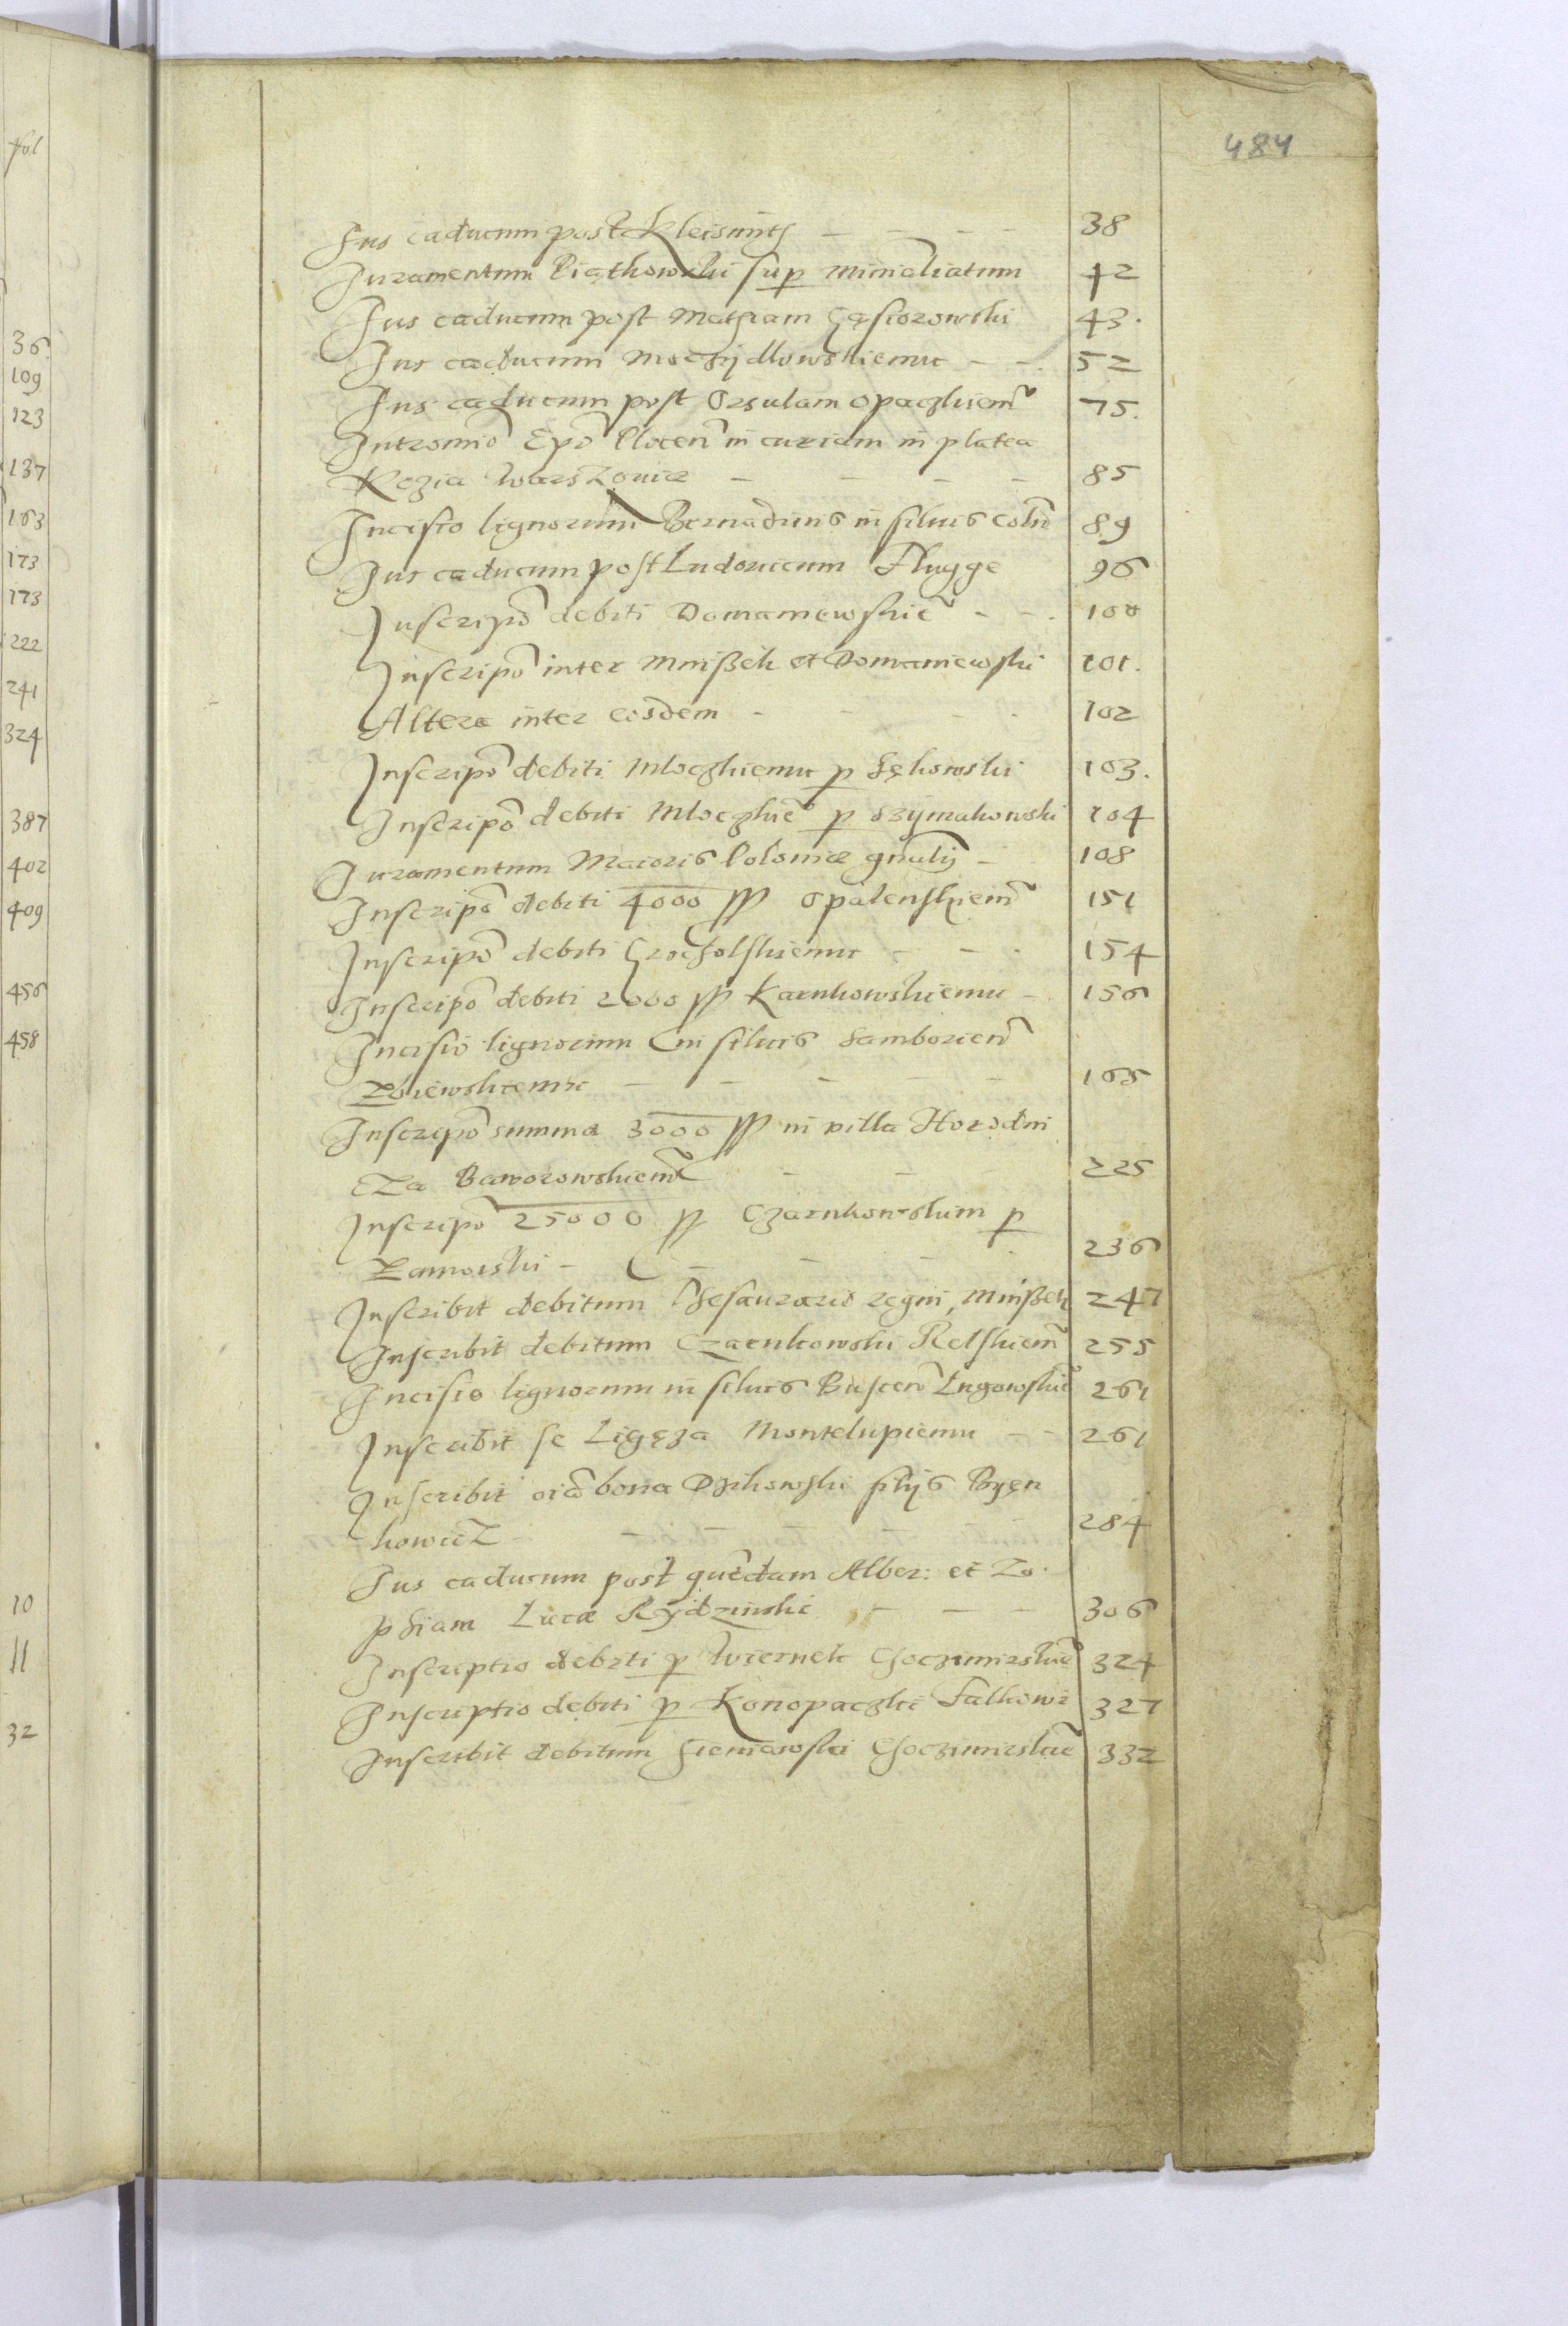 fol
36
109
123
137
163
173
173
222
241
324
387
402
409
456
458
10
11
32
484
Jus caducum post Kleisnitz - - - - 38
Juramentum Piąthowski sup minialiatum 42
Jus caducum post Mathiam Gąsiorowski 43.
Jus caducum Mochÿdłowskiemu - - 52
Jus caducum post Orsulam Opaczkiem̃ 75.
Intromiõ Epõ Plocen̄ in curiam in platea
Regia Warszoviæ - - - - 85
Incisio lignorum Bernadinis in siluis 89
Jus caducum post Ludovicum Flugge 96
Inscripõ debiti Domaniewskiẽ - - . 100
Inscripõ inter Mnißek et Domaniewski 101.
Altera inter eosdem - - - . 102
Inscripõ debiti Młoczkiemu p Sękowski 103.
Inscripõ debiti Młoczkiẽ p Szÿmakowski 104
Juramentum Maioris Poloniæ gnalis̃ - 108
Inscripõ debiti 4000 Opalenskiem̃ 151
Inscripõ debiti Grocholskiemu - - . 154
Inscripõ debiti 2000 Karnkowskiemu - 156
Incisio lignorum in siluis Samborien̄
Zbiewskiemu - - - - - 165
Inscripõ summæ 3000 in villa Horodni
cza Baworowskiem̃ - - - 225
Inscripõ 25000 Czarnkowskim p
Zamoiski - - - - . 236
Inscribit debitum Thesaurario regni, Mnißek 247
Inscribit debitum Czarnkowski Relskiem̃ 255
Incisio lignorum in siluis Buscen̄ Ługowskiẽ 261
Inscribit se Ligęza Montelupiemu - - 261
Inscribit oiã bona Dzikowski filijs Byęn
kowicz - - - - - - 284
Jus caducum post quendam Alber: et Zo.
phiam Lucæ Rÿdzinski - - - 306
Inscriptio debiti p Wiernek Choczimirskiẽ 324
Inscriptio debiti p Konopaczki Falkowi 327
Inscribit debitum Sieniawski Choczimirskiẽ 332